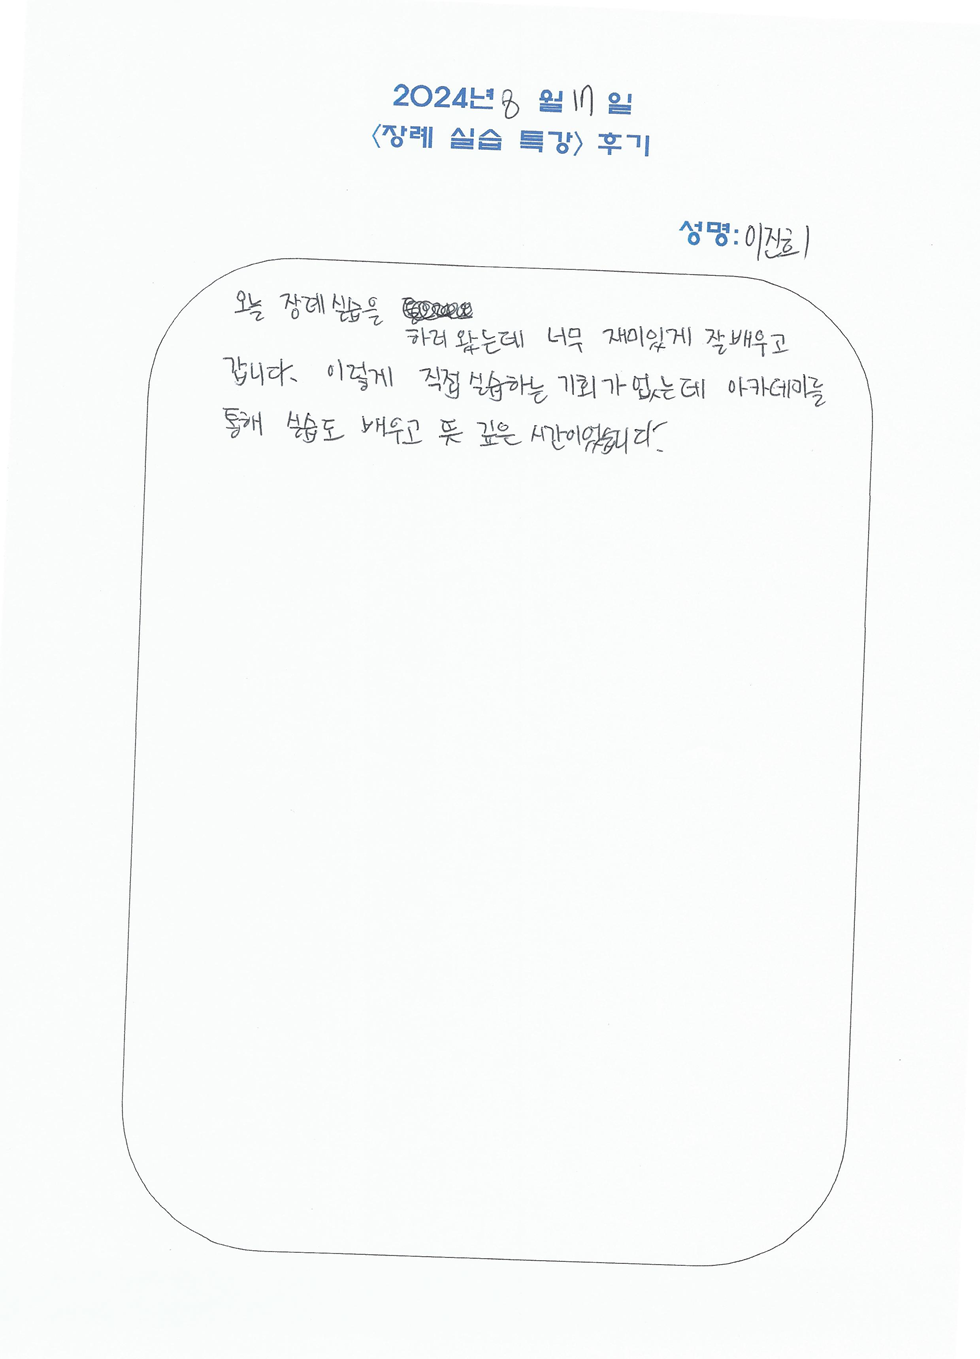 2024년 8 월 17 일
<장례 실습 특강> 후기
성명: 이진희
오늘 장례실습을
하러 왔는데 너무 재미있게 잘배우고
갑니다. 이렇게 직접 실습하는 기회가 없는데 아카데미를
통해 실습도 배우고 뜻 깊은 시간이었습니다.